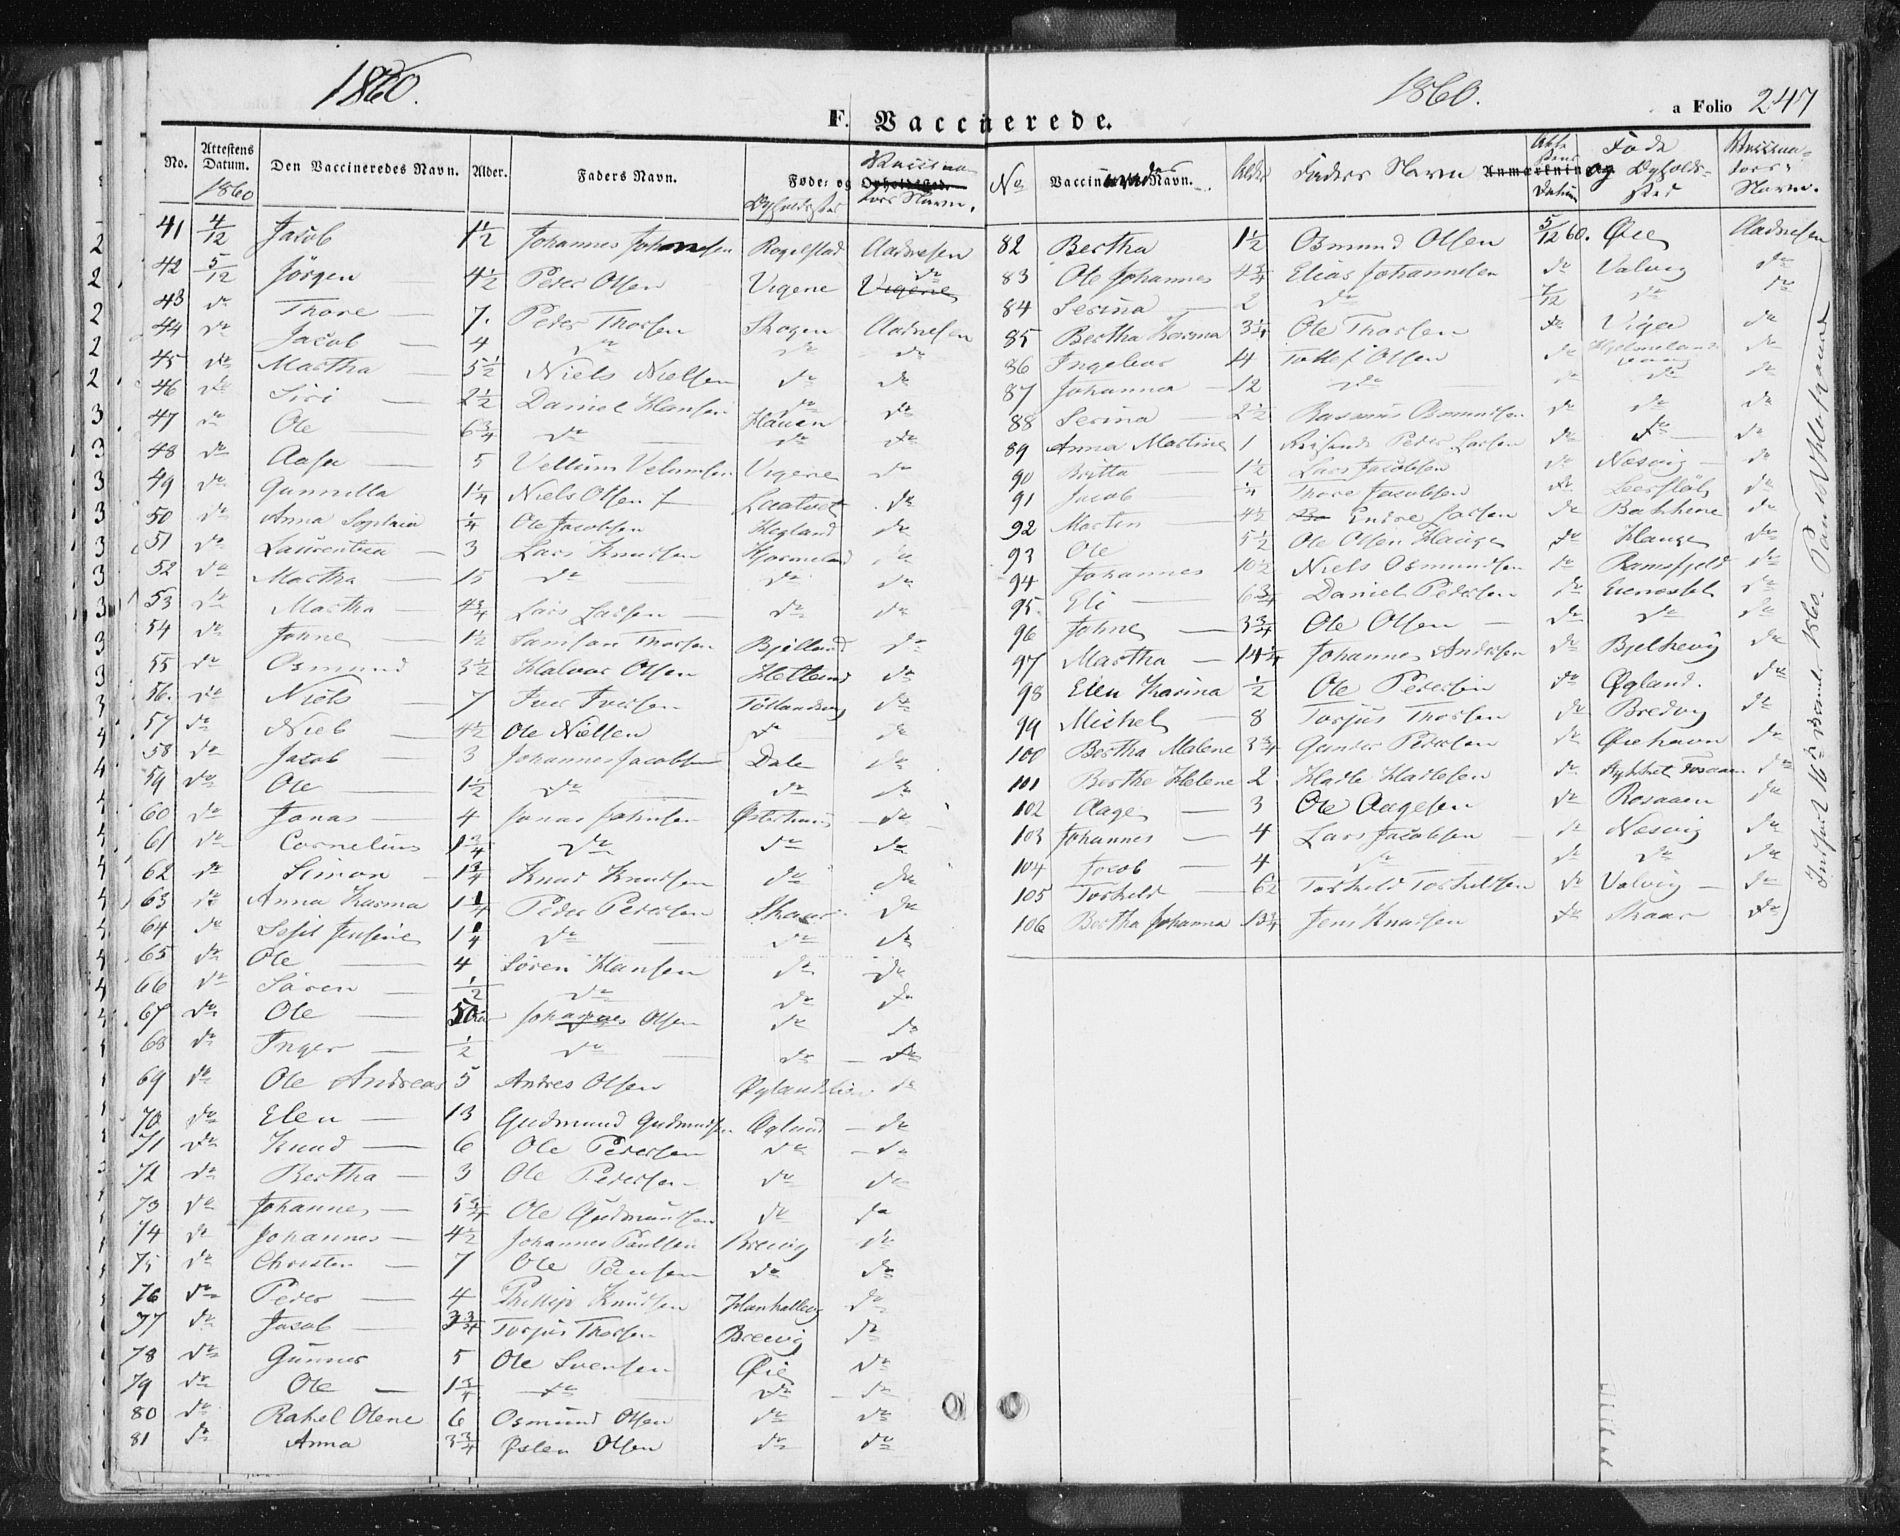 1860.
1860.
a Folio 247
F. Vaccinerede.
No. Attestens Datum. 1860 Den Vaccineredes Navn. Alder. Faders Navn. Føde: og Opholdssted
41 4/12 Jacob 1½ Johannes Johannesen Rogelstad Aadnesen
42 5/12 Jörgen 4½ Peder Olsen Vigene do
43 do Thore 7. Peder Thorsen Skogen Aadnesen
44 do Jacob 4 do do do
45 do Martha 5½ Niels Nielsen do do
46 do Siri 2½ Daniel Hansen do do
47 do Ole 6¾ do Hauen do
48 do Aasa 5 Vellum Velumsen Vigene do
49 do Gunnilla 1¼ Niels Olsen do
50 do Anna Sophia ¼ Ole Jacobsen Hegland do
51 do Laurentza 3 Lars Knudsen do
52 do Martha 15 do do do
53 do Martha 4¾ Lars Larsen do do
54 do Johne 1½ Samson Thorsen Bjelland do
55 do Osmund 3½ Halvor Olsen Hetland do
56. do Niels 7 Iver Iversen Töllandsvig do
57 do Niels 4½ Ole Nielsen do do
58 do Jacob 3 Johannes Jacobsen Dale do
59 do Ole 1½ do do do
60 do Jonas 4 Jonas Johnsen Østerhuus do
61 do Cornelius 1¾ do do do
62 do Simon 1¾ Knud Knudsen do do
63 do Anna Karina 1¼ Peder Pedersen Skaar do
64 do Jensine 1¼ do do do
65 do Ole 4 Sören Hansen do do
66 do Sören ½ do do do
67 do Ole Johannes Olsen do do
68 do Inger ½ do do do
69 do Ole Andreas 5 Andres Olsen Øglandslien do
70 do Elen 13 Gudmund Gudmundsen Øgland do
71 do Knud 6 Ole Pedersen do do
72 do Bertha 3 Ole Pedersen do do
73 do Johannes 5¾ Ole Gudmundsen do do
74 do Johannes 4½ Johannes Paulsen Brevig do
75 do Christen 7 Ole do do
76 do Peder 4 Phillip Knudsen do
77 do Jacob 3¾ Torjus Thorsen Brevig do
78 do Gunner 5 Ole Svensen Øie do
79 do Ole 1¾ do do do
80 do Rakel Olene 6 Osmund Olsen do do
81 do Anna 3¾ Østen Olsen do do
No Vaccineredes Navn. Alder Faders Navn Attestens Datum Føde og Opholdssted Vaccinators Navn.
82 Bertha 1½ Osmund Olsen 5/12 60. Øie Aadnesen
83 Ole Johannes 4¾ Elias Johannesen do Valvig do
84 Serina 2 do 7/12 do do
85 Bertha Karina 3¼ Ole Thorsen do Viga do
86 Ingebor 4 Tollef Olsen do do
87 Johanna 12 do do do do
88 Serina 2½ Rasmus Osmundsen do do do
89 Anna Martine 1 Peder Larsen do do do
90 Britta 1½ Lars Jacobsen do Næsvig do
91 Jacob Thore Jacobsen do do
92 Morten 4½ Endre Larsen do Bakkene do
93 Ole 5½ Ole Olsen Hauge do Hauge do
94 Johannes 10½ Niels Osmundsen do Ramsfjeld do
95. Eli 6¾ Daniel Pedersen do Eieneset do
96 Johne 3¾ Ole Olsen do do do
97 Martha 14¼ Johannes Andersen do Bjelkevig do
98 Elen Karina ½ Ole Pedersen do Øgland. do
99 Mickel 8 Torjus Thorsen do Bredvig do
100 Bertha Malene 3¾ Gunder Pedersen do Øiehavn do
101 Berthe Helene 2 do do
102 Aage 3 Ole Aagesen do Rosaaen do
103 Johannes 4 Lars Jacobsen do Næsvig do
104 Jacob 4 do do do do
105 Torkeld 6½ Torkeld Torkeldsen do Valvig do
106 Bertha Johanna 13¾ Jens Knudsen do Skaar do